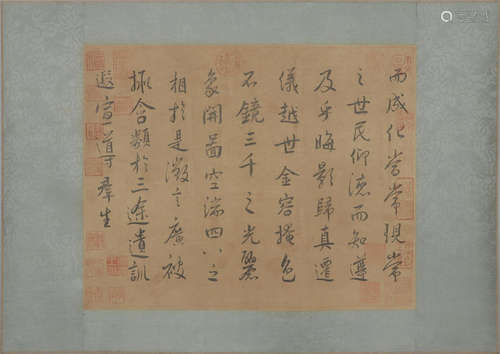 而成化当常现常
之世民仰德而知遵
及乎晦影歸真遷
儀越世金容掩色
不鏡三千之光麗
象開圖空端四八之
相於是微言廣被
拯含類於三途遺訓
遐宣導群生